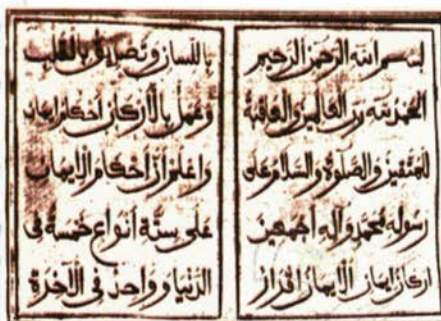 بسم الله الرحمن الرحيم
الحمد لله رب العالمين والعاقبة
للمتقين والصلوة والسلام على
رسوله محمد وآله أجمعين
اركان ايمان الإيمان اقرار
باللسان وتصديق بالقلب
وعمل بالأركان أحكام ايمان
واعلم أن أحكام الإيمان
على ستة أنواع خمسة في
الدنيا وواحد في الآخرة